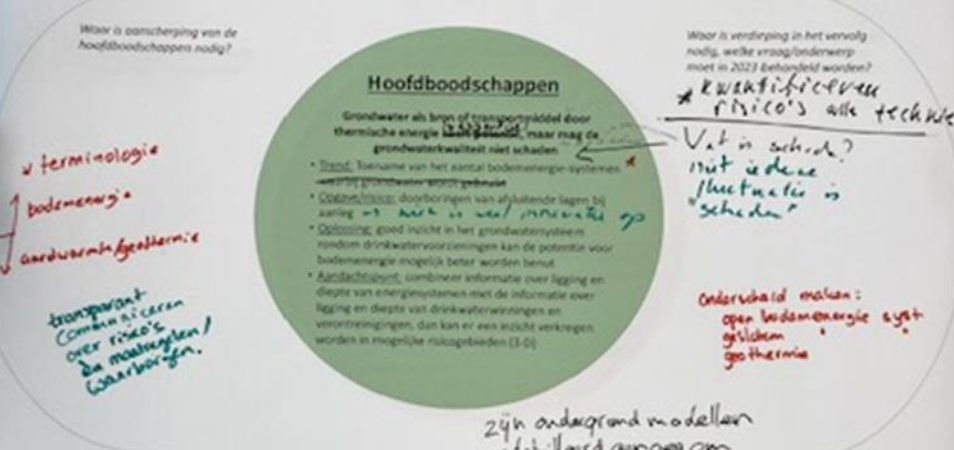 Waar is aanscherping van de
hoofdboodschappen nodig?
terminologie
bodemenergie
aardwarmte/geothermie
transparant
communiceren
over risico's
en maatregelen/
waarborgen.
Hoofdboodschappen
Grondwater als bron of transportmiddel door
thermische energie maar mag de
grondwaterkwaliteit niet schaden
• Trend: Toename van het aantal bodemenergie-systemen
waarbij grondwater wordt gebruikt
• Opgave/risico: doorboringen van afsluitende lagen bij
aanleg
• Oplossing: goed inzicht in het grondwatersysteem
rondom drinkwatervoorzieningen kan de potentie voor
bodemenergie mogelijk beter worden benut
• Aandachtspunt: combineer informatie over ligging en
diepte van energiesystemen met de informatie over
ligging en diepte van drinkwaterwinningen en
verontreinigingen, dan kan er een inzicht verkregen
worden in mogelijke risicogebieden (3-D)
Waar is verdieping in het vervolg
nodig, welke vraag/onderwerp
moet in 2023 behandeld worden?
* kwantificeren
risico's alle technie
Wat is schade?
niet iedere
fluctuatie is
"schaden"
onderscheid maken:
open bodemenergie syst
gesloten " "
geothermie
zijn ondergrond modellen